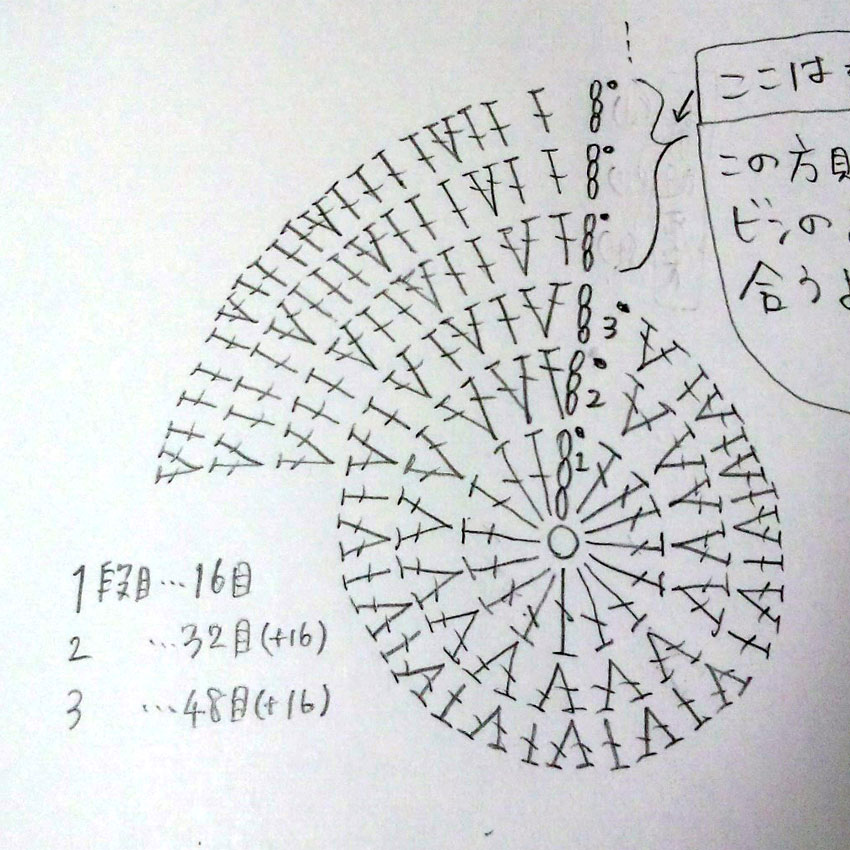 ここは
この方則
ビンの
合うよ
3
2
1
1段目…16目
2 …32目(+16)
3 …48目(+16)